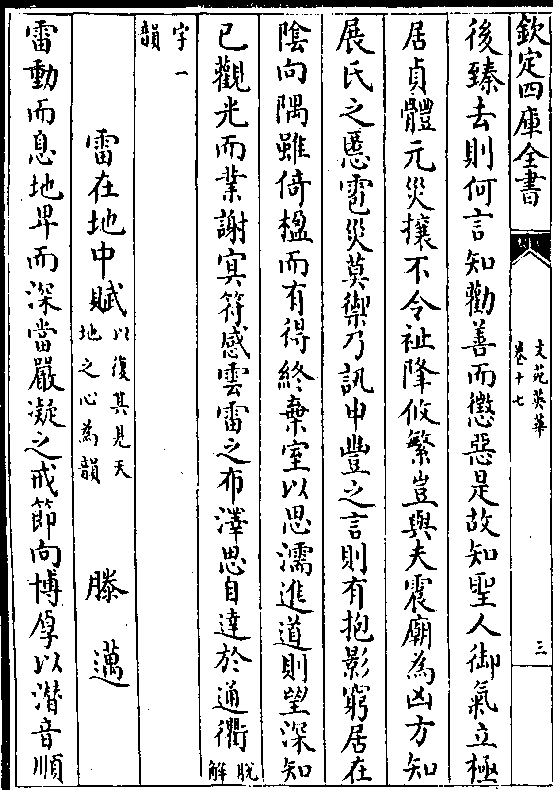 欽定四庫全書
文苑英華
卷十七
三
後臻去則何言知勸善而懲惡是故知聖人御氣立極
居貞體元災攘不令祉降攸繁豈與夫震廟為凶方知
展氏之慝雹災莫禦乃訊申豐之言則有抱影窮居在
陰向隅雖倚楹而有得終棄室以思濡進道則望深知
已觀光而業謝冥符感雲雷之布澤思自達於通衢脫
解
字一
韻
雷在地中賦以復其見天
地之心為韻
滕邁
雷動而息地卑而深當嚴凝之戒節向博厚以潛音順